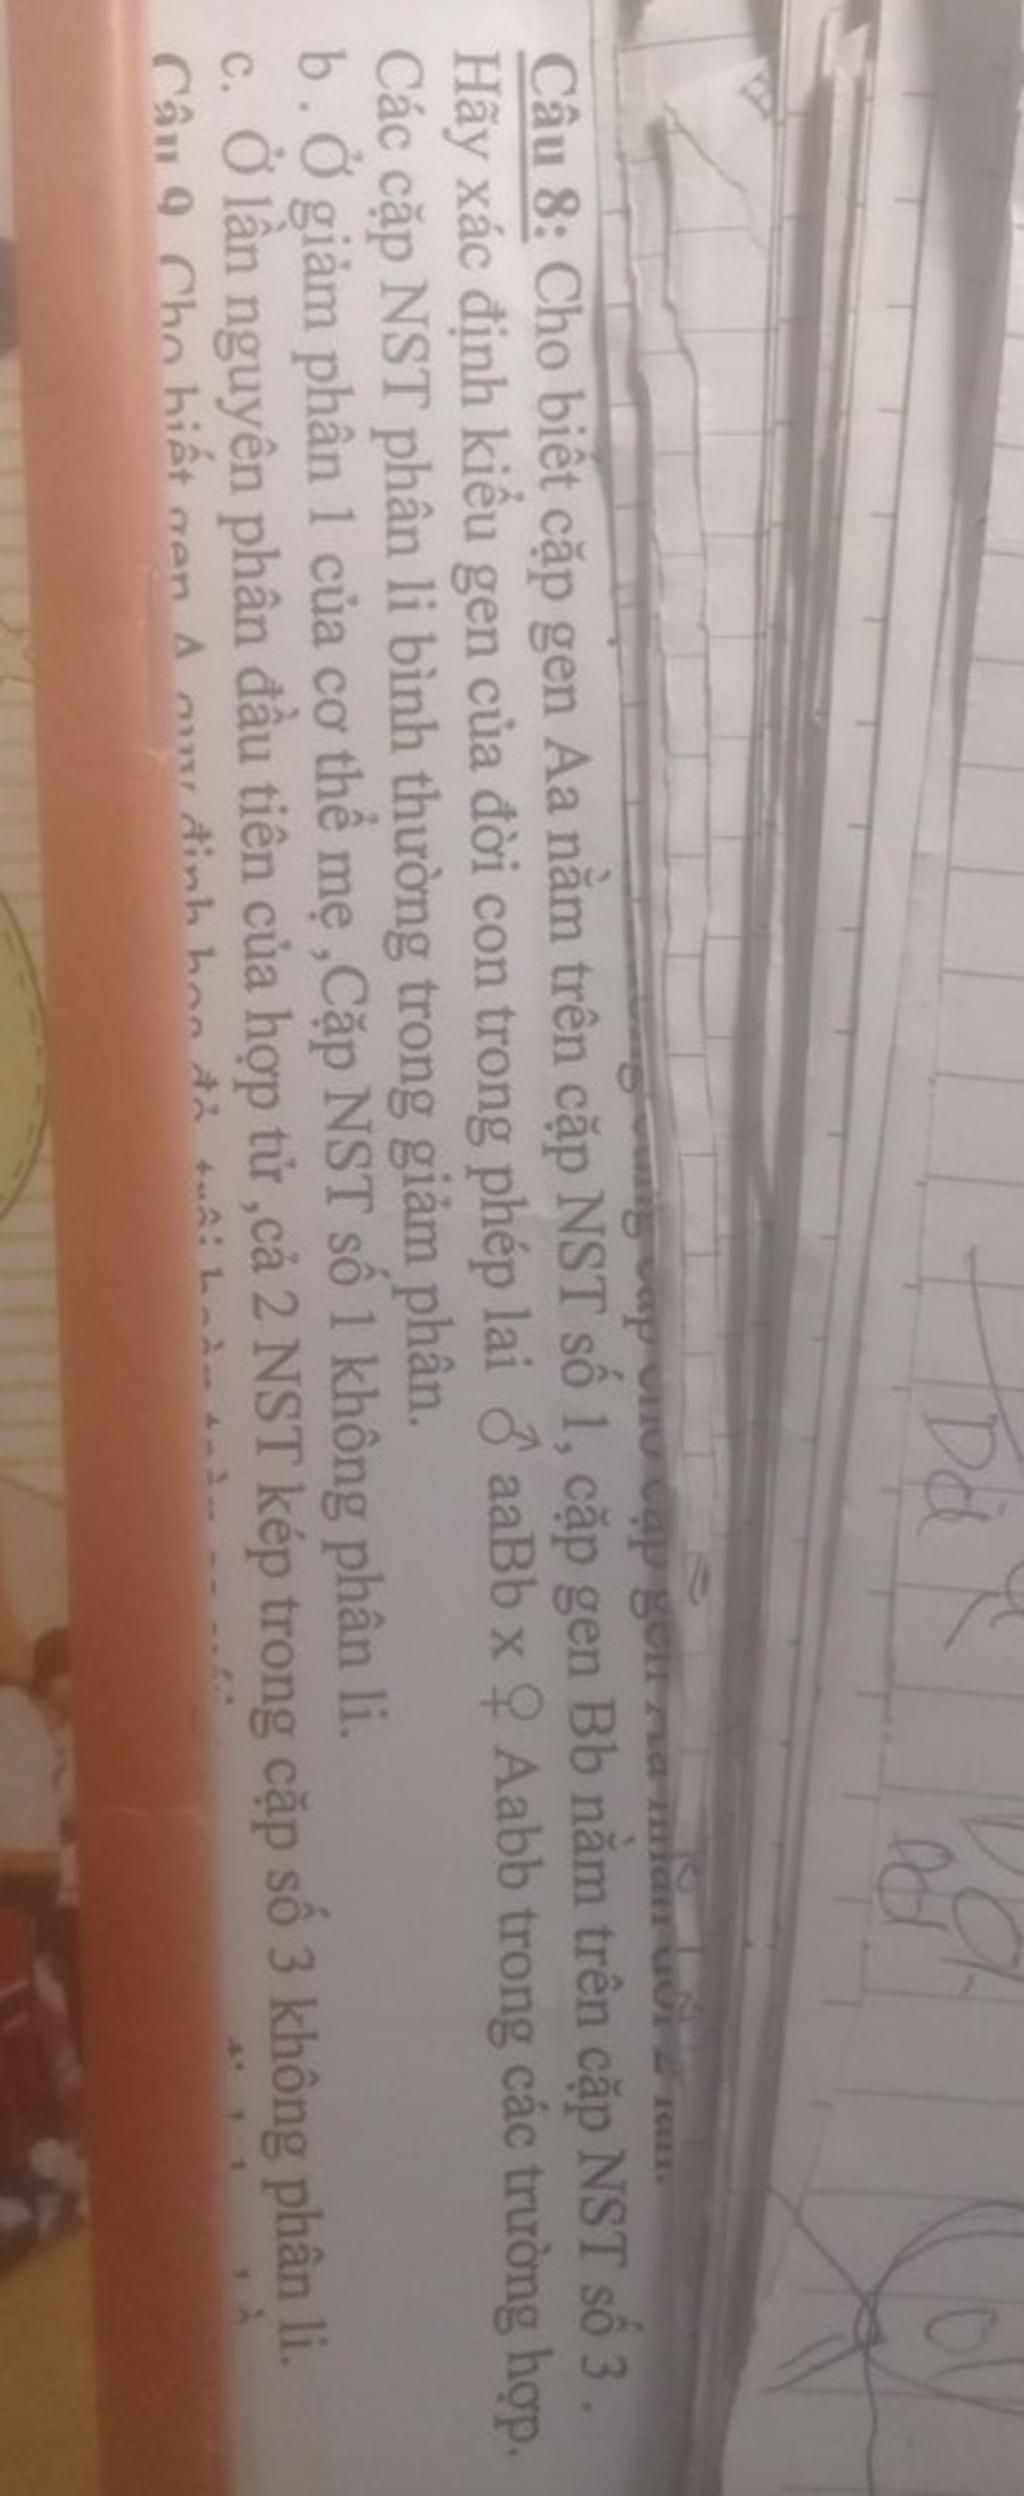 Câu 8: Cho biết cặp gen Aa nằm trên cặp NST số 1, cặp gen Bb nằm trên cặp NST số 3 .
Hãy xác định kiểu gen của đời con trong phép lai ♂ aaBb x ♀ Aabb trong các trường hợp.
Các cặp NST phân li bình thường trong giảm phân.
b . Ở giảm phân 1 của cơ thể mẹ ,Cặp NST số 1 không phân li.
c. Ở lần nguyên phân đầu tiên của hợp tử ,cả 2 NST kép trong cặp số 3 không phân li.
Câu 9 Cho biết gen A quy định hoa đỏ